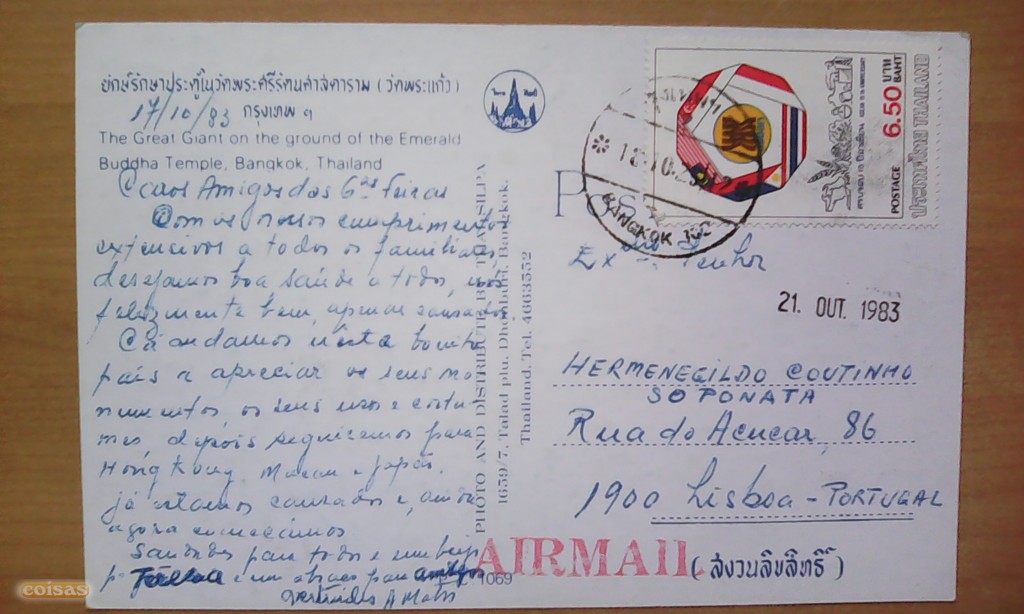 ยักษ์รักษาประตูในวัดพระศรีรัตนศาสดาราม (วัดพระแก้ว)
17/10/83 กรุงเทพ ฯ
The Great Giant on the ground of the Emerald
Buddha Temple, Bangkok, Thailand
Caros Amigos das 6as feiras
Com os nossos cumprimentos
extensivos a todos os familiares,
desejamos boa saúde a todos, nós
felizmente bem, apenas cansados
Cá andamos nesta bonito
país a apreciar os seus mo
numentos, os seus usos e costu
mes, depois seguiremos para
Hong Kong, Macau e Japão.
já estamos cansados e, ainda
agora começámos
Saudades para todos e um beijo
p e um abraço para amigos
Gertrudes A Matos
PHOTO AND DISTRIBUTE BY THAISILPA
1659/7, Talad plu, Dhonburi, Bangkok.
Thailand. Tel. 4663552
1069
POS
6.50 บาท
BAHT
POSTAGE
ประเทศไทย THAILAND
BANGKOK
Exmo Senhor
21. OUT. 1983
HERMENEGILDO COUTINHO
SOPONATA
Rua do Acucar, 86
1900 Lisboa - PORTUGAL
AIRMAIL
(สงวนลิขสิทธิ์)
coisas